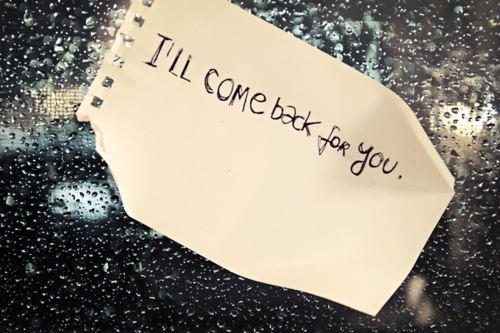 I'LL COMe back foR you.